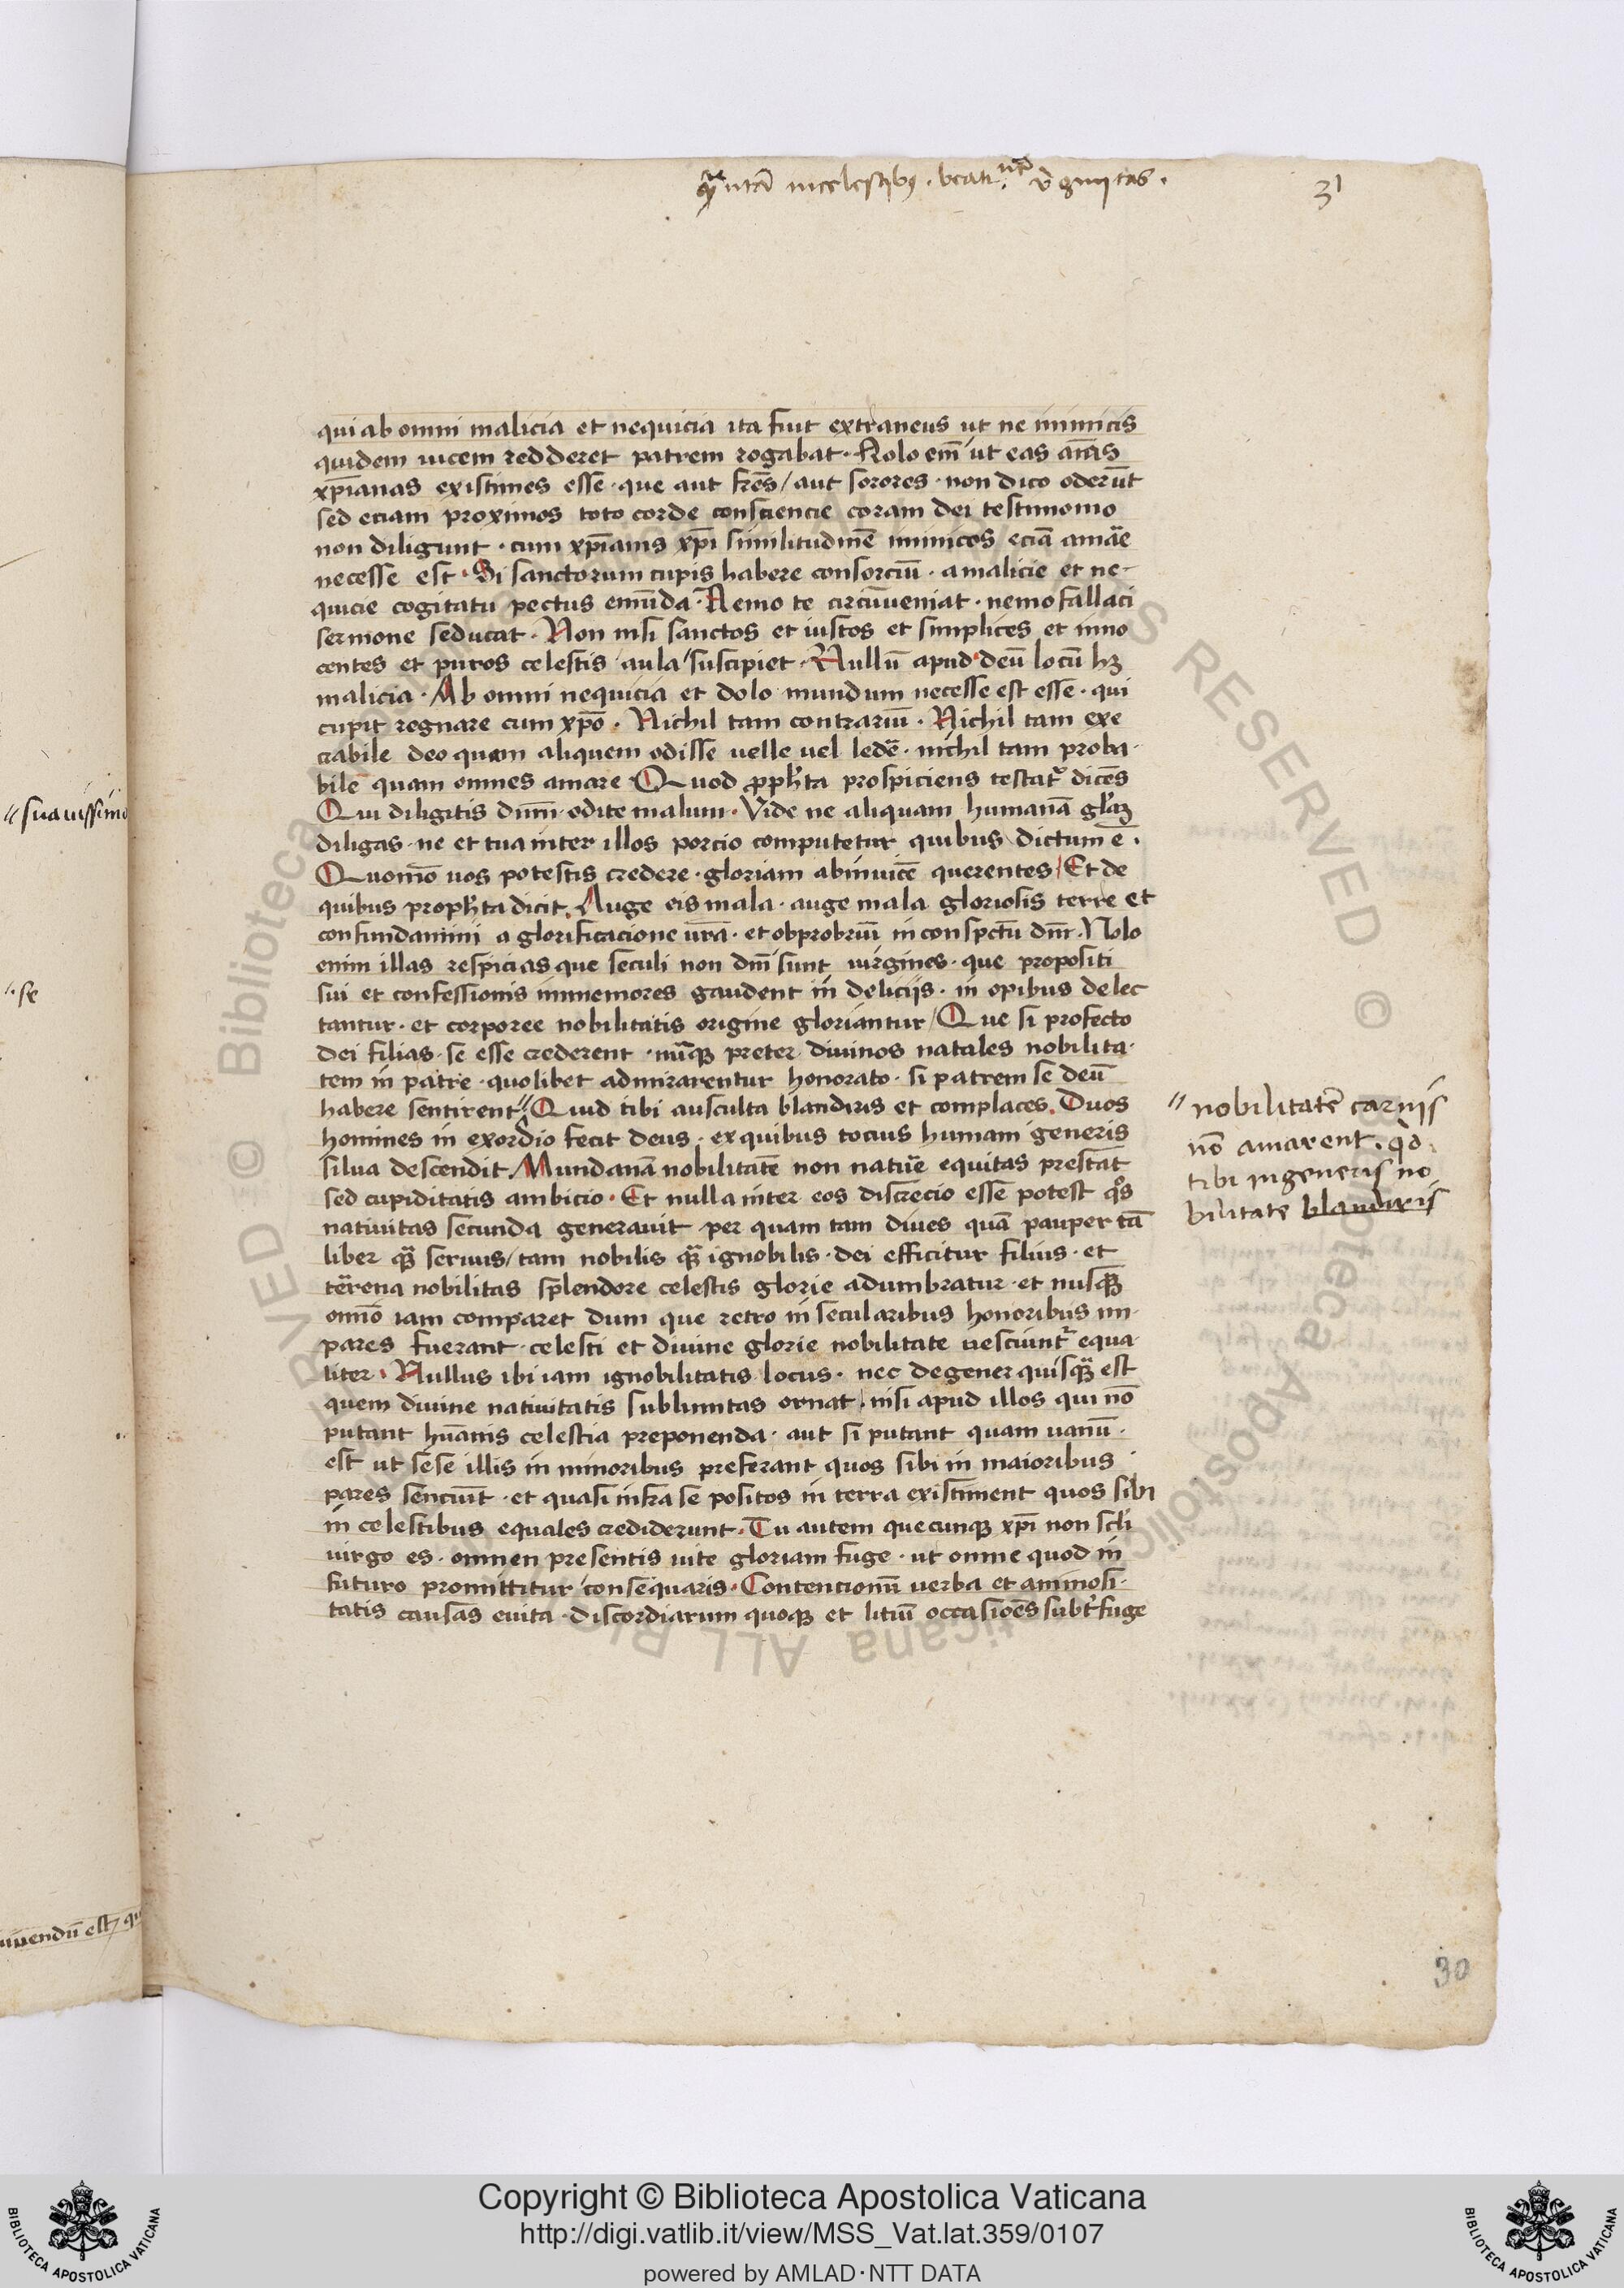 31
qui ab omni malicia et nequicia ita fuit extraneus ut ne inimicis
quidem uicem redderet patrem rogabat · Nolo em̄ ut eas aīas
xp̄ianas existimes esse · que aut fr̄es / aut sorores · non dico oderūt
sed eciam proximos toto corde consciencie coram dei testimonio
non diligunt · cum xp̄ianis xp̄i similitudinē inimicos eciā amāe
necesse est · Si sanctorum cupis habere consorciū · a malicie et ne-
quicie cogitatu pectus emūda · Nemo te circūueniat · nemo fallaci
sermone seducat · Non nisi sanctos et iustos et simplices et inno
centes et puros celestis aula suscipiet · Nullū apud deū locū hꝫ
malicia · Ab omni nequicia et dolo mundum necesse est esse · qui
cupit regnare cum xp̄o · Nichil tam contrariū · Nichil tam exe
crabile deo quam aliquem odisse uelle uel ledē · nichil tam proba-
bile quam omnes amare · Quod ꝓph̄ta prospiciens testat᷑ dicēs
Qui diligitis dn̄m odite malum · Vide ne aliquam humanā gl̄iaꝫ
diligas · ne et tua inter illos porcio computetur quibus dictum ē ·
Quomō uos potestis credere · gloriam abinuicē querentes / Et de
quibus proph̄ta dicit · Auge eis mala · auge mala gloriosis terre et
confundamini a glorificacione ur̄a · et obprobriū in conspctū dn̄i · Nolo
enim illas respicias que seculi non dn̄i sunt uirgines · que propositi
sui et confessionis immemores gaudent in deliciis · in opibus delec
tantur · et corporee nobilitatis origine gloriantur / Que si profecto
dei filias · se esse crederent · nūqꝫ preter diuinos natales nobilita-
tem in patre · quolibet admirarentur honorato · si patrem se deū
habere sentirent // Quid tibi ausculta blandiris et complaces · Duos
homines in exordio fecit deus · ex quibus tocius humani generis
silua descendit · Mundanā nobilitatē non natur̄e equitas prestat
sed cupiditatis ambicio · Et nulla inter eos discrecio esse potest qͦs
natiuitas secunda generauit · per quam tam diues quā pauper tā
liber qͣꝫ seruus / tam nobilis qͣꝫ ignobilis · dei efficitur filius · et
terrena nobilitas splendore celestis glorie adumbratur · et nusqͣꝫ
omō iam comparet dum que retro in secularibus honoribus im-
pares fuerant · celesti et diuine glorie nobilitate uesciunt᷑ equa-
liter · Nullus ibi iam ignobilitatis locus · nec degener quisqͣꝫ est
quem diuine natiuitatis sublimitas ornat · nisi apud illos qui nō
putant hūanis celestia preponenda · aut si putant quam uanū ·
est ut sese illis in minoribus preferant quos sibi in maioribus
pares senciūt · et quasi infra se positos in terra existiment quos sibi
in celestibus equales crediderunt · Tu autem quecunqꝫ xp̄i non sc̄li
uirgo es · omnen presentis uite gloriam fuge · ut omne quod in
futuro promittitur consequaris · Contencionū uerba et animosi-
tatis causas euita · discordiarum quoqꝫ et litiū occasiōes subt᷑fuge
// nobilitatē carnis
nō amarent · qd
tibi in generis no
bilitate blandiris
// suauissimo
·· se
uiuendū est / qu
30
© Biblioteca Apostolica Vaticana ALL RIGHTS RESERVED
Copyright © Biblioteca Apostolica Vaticana
http://digi.vatlib.it/view/MSS_Vat.lat.359/0107
powered by AMLAD·NTT DATA
BIBLIOTECA APOSTOLICA VATICANA
BIBLIOTECA APOSTOLICA VATICANA